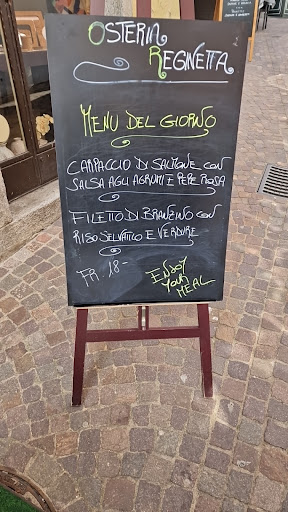 OSTERIA
REGINETTA
MENU DEL GIORNO
CARPACCIO DI SALMONE CON
SALSA AGLI AGRUMI E PEPE ROSA
FILETTO DI BRANZINO CON
RISO SELVATICO E VERDURE
FR. 18-
ENJOY
YOUR
MEAL